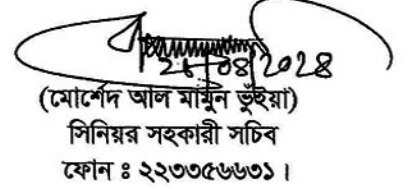 ২৮/০৪/২০২৪
(মোর্শেদ আল মামুন ভুঁইয়া)
সিনিয়র সহকারী সচিব
ফোন ঃ ২২৩৩৫৬৬৩১।